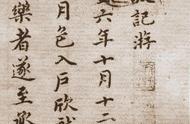 記游
六年十月十二
月色入戶欣然
樂者遂至承